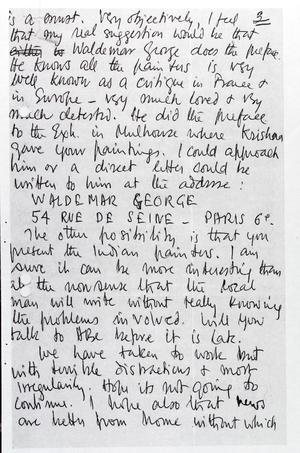 3
is a must. Very objectively, I feel
that my real suggestion would be that
Waldemar George does the preface.
He knows all the painters is very
well known as a critique in France &
in Europe - very much loved & very
much detested. He did the preface
to the Exh. in Mulhouse where Krishan
gave your paintings. I could approach
him or a direct letter could be
written to him at the address:
WALDEMAR GEORGE
54 RUE DE SEINE - PARIS 6e.
The other possibility is that you
present the Indian painters. I am
sure it can be more interesting than
all the nonsense that the local
man will write without really knowing
the problems involved. Will you
talk to before it is late.
We have taken to work but
with terrible distractions & most
irregularity. Hope its not going to
continue. I hope also that news
are better from home without which